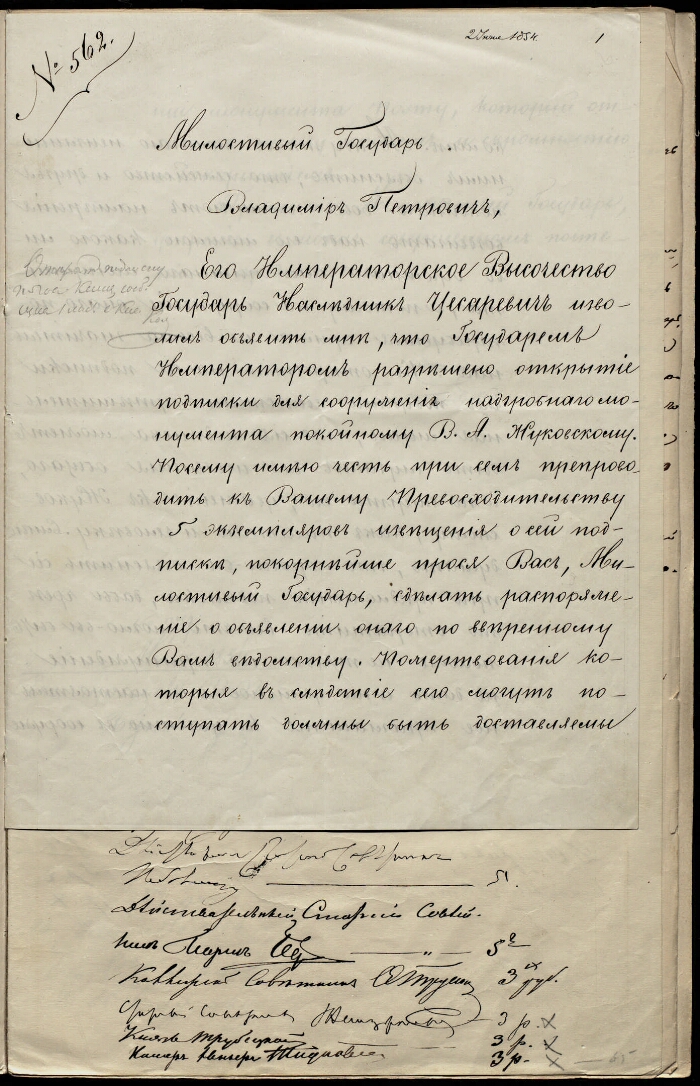 № 562.
2 Июня 1854.
1
Милостивый Государь.
Владиміръ Петровичъ,
Его Императорское Высочество
Государь Наслѣдникъ Цесаревичъ изво-
лилъ объявить мнѣ, что Государемъ
Императоромъ разрѣшено открытіе
подписки для сооруженія надгробнаго мо-
нумента покойному В. А. Жуковскому.
Посему имѣю честь при семъ препрово-
дить къ Вашему Превосходительству
5 экземпляровъ извѣщенія о сей под-
пискѣ, покорнѣйше прося Васъ, Ми-
лостивый Государь, сдѣлать распоряже-
ніе о объявленіи онаго по ввѣренному
Вамъ вѣдомству. Пожертвованія ко-
торыя въ слѣдствіе сего могутъ по-
ступать должны быть доставляемы
5.
Дѣйствительный Статскій Совѣт-
никъ 5
Коллежскій Совѣтникъ 3 руб.
3 р. х
Князь Трубецкой 3 р. х
Камеръ Юнкеръ 3 р. х